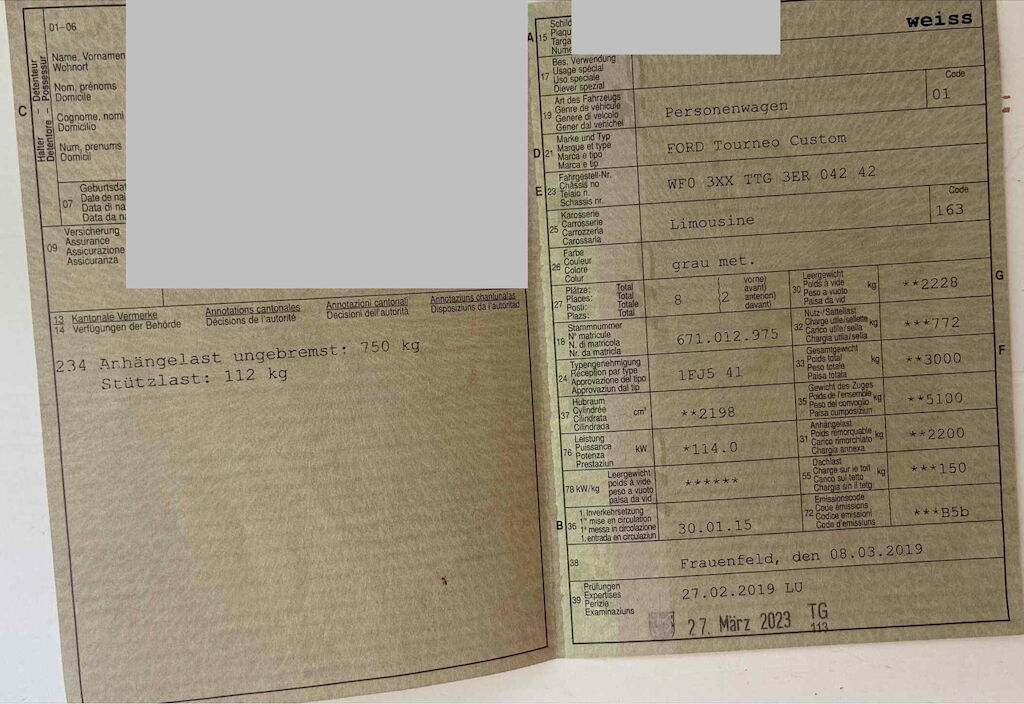 01-06
C
Halter - Détenteur
Detentore - Possessur
Name, Vornamen
Wohnort
Nom, prénoms
Domicile
Cognome, nomi
Domicilio
Num, prenums
Domicil
07
Geburtsdat
Date de nai
Data di na
Data da na
09
Versicherung
Assurance
Assicurazione
Assicuranza
13 Kantonale Vermerke Annotations cantonales Annotazioni cantonali Annotaziuns chantunalas
14 Verfügungen der Behörde Décisions de l'autorité Decisioni dell'autorità Disposiziuns da l'autoritad
234 Anhängelast ungebremst: 750 kg
Stützlast: 112 kg
A 15
Schild
Plaqu
Targa
Nume
weiss
17
Bes. Verwendung
Usage spécial
Uso speciale
Diever spezial
19
Art des Fahrzeugs
Genre de véhicule
Genere di veicolo
Gener dal vehichel
Personenwagen
Code
01
D 21
Marke und Typ
Marque et type
Marca e tipo
Marca e tip
FORD Tourneo Custom
E 23
Fahrgestell-Nr.
Châssis no
Telaio n.
Schassis nr.
WF0 3XX TTG 3ER 042 42
25
Karosserie
Carrosserie
Carrozzeria
Carossaria
Limousine
Code
163
26
Farbe
Couleur
Colore
Colur
grau met.
27
Plätze: Total
Places: Total
Posti: Totale
Plazs: Total
8
2
vorne)
avant)
anteriori)
davant)
30
Leergewicht
Poids à vide
Peso a vuoto
Paisa da vid
kg
**2228
G
18
Stammnummer
N° matricule
N. di matricola
Nr. da matricla
671.012.975
32
Nutz-/Sattellast
Charge utile/sellette
Carico utile/sella
Chargia utila/sella
kg
***772
24
Typengenehmigung
Réception par type
Approvazione del tipo
Approvaziun dal tip
1FJ5 41
33
Gesamtgewicht
Poids total
Peso totale
Paisa totala
kg
**3000
F
37
Hubraum
Cylindrée
Cilindrata
Cilindrada
cm³
**2198
35
Gewicht des Zuges
Poids de l'ensemble
Peso del convoglio
Paisa cumposiziun
kg
**5100
76
Leistung
Puissance
Potenza
Prestaziun
kW
*114.0
31
Anhängelast
Poids remorquable
Carico rimorchiato
Chargia annexa
kg
**2200
78 kW/kg
Leergewicht
poids à vide
peso a vuoto
paisa da vid
******
55
Dachlast
Charge sur le toit
Carico sul tetto
Chargia sin il tetg
kg
***150
B 36
1. Inverkehrsetzung
1re mise en circulation
1a messa in circolazione
1. entrada en circulaziun
30.01.15
72
Emissionscode
Code émissions
Codice emissioni
Code d'emissiuns
***B5b
38
Frauenfeld, den 08.03.2019
39
Prüfungen
Expertises
Perizie
Examinaziuns
27.02.2019 LU
27. März 2023 TG
113